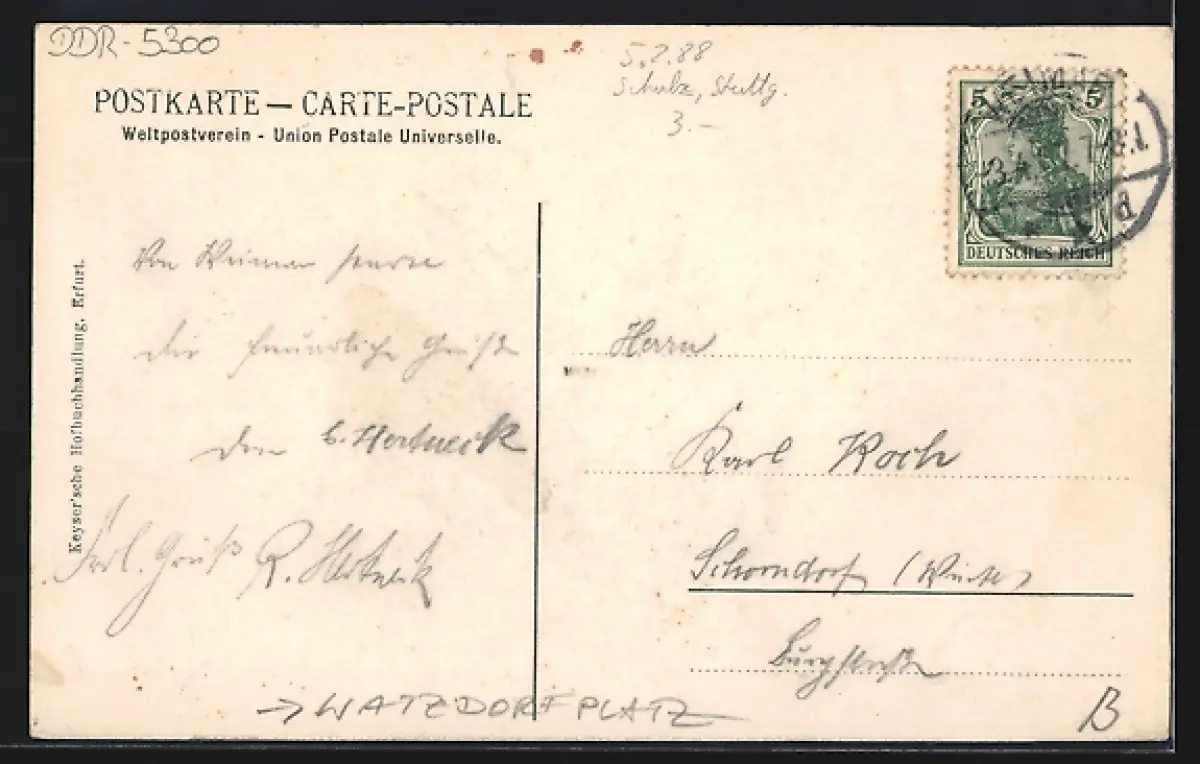 DDR-5300
5.2.88
Schulz, Stuttg.
3.-
POSTKARTE — CARTE-POSTALE
Weltpostverein - Union Postale Universelle.
5 5
DEUTSCHES REICH
Keyser'sche Hofbuchhandlung, Erfurt.
Von Weimar sende
die freundliche Grüße
Dein E. Hertneck
Frdl. Gruß R. Hertneck
Herrn
Karl Koch
Schorndorf
Burgstraße
→ WATZDORFPLATZ
B